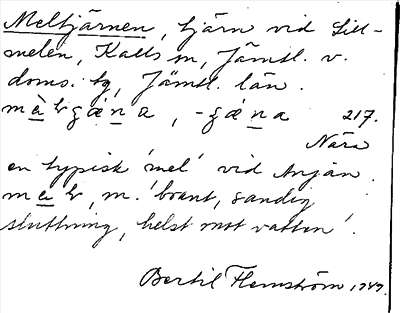 Meltjärnen, tjärn vid Lill-
melen, Kalls sn, Jämtl. v.
doms. tg, Jämtl. län.
217.
Nära
en typisk 'mel' vid Anjan.
m, m. 'brant, sandig
sluttning, helst mot vatten'.
Bertil Flemström 1949.